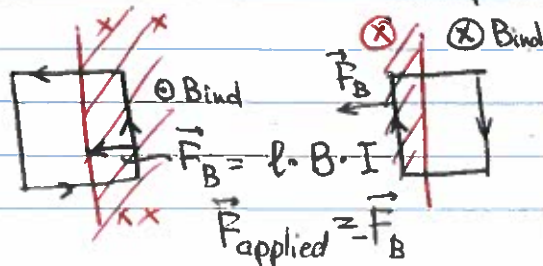 x x ⊗ ⊗ Bind
⊙ Bind F⃗_B
F⃗_B = l · B · I
x x F⃗_applied = -F⃗_B